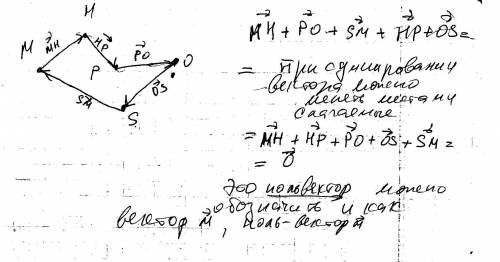 H
M
MH
HP
P
PO
O
OS
SM
S
MH + PO + SM + HP + OS =
= При суммировании
вектора можно
менять местами
слагаемые
= MH + HP + PO + OS + SM =
= O
это нольвектор можно
обозначить и как
вектор M, ноль-вектор